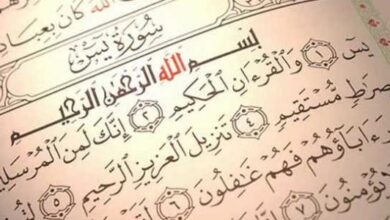 ٱللَّهَ كَانَ بِعِبَادِ
سُورَةُ يسٓ
بِسْمِ ٱللَّهِ ٱلرَّحْمَٰنِ ٱلرَّحِيمِ
يسٓ ۝١ وَٱلْقُرْءَانِ ٱلْحَكِيمِ ۝٢ إِنَّكَ لَمِنَ ٱلْمُرْسَلِ
صِرَٰطٍ مُّسْتَقِيمٍ ۝٤ تَنزِيلَ ٱلْعَزِيزِ ٱلرَّحِيمِ ۝٥
ءَابَآؤُهُمْ فَهُمْ غَٰفِلُونَ ۝٦
يُؤْمِنُونَ ۝٧